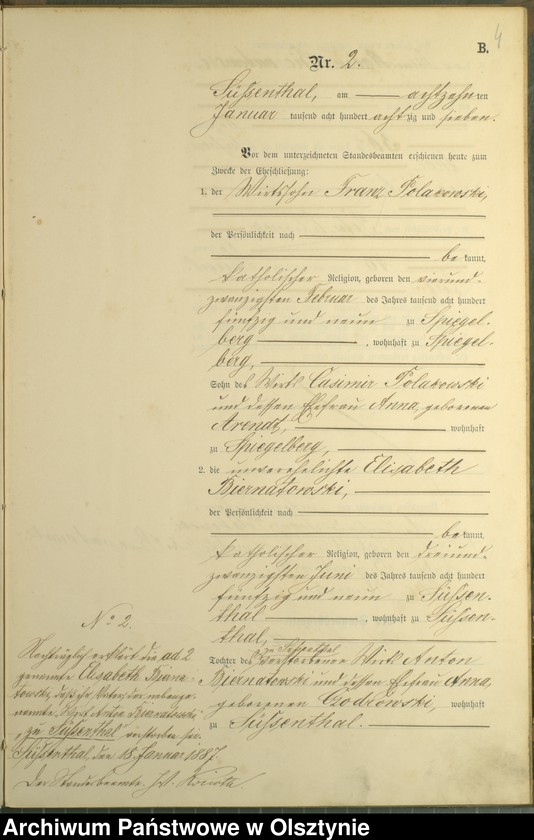 4
B.
Nr. 2.
Süssenthal, am achtzehn ten
Januar tausend acht hundert achtzig und sieben.
Vor dem unterzeichneten Standesbeamten erschienen heute zum
Zwecke der Eheschließung:
1. der Wirtssohn Franz Polakowski,
der Persönlichkeit nach
bekannt,
katholischer Religion, geboren den vierund-
zwanzigsten Februar des Jahres tausend acht hundert
fünfzig und neun zu Spiegel-
berg, wohnhaft zu Spiegel-
berg,
Sohn des Wirts Casimir Polakowski
und dessen Ehefrau Anna, geborenen
Arendt, wohnhaft
zu Spiegelberg,
2. die unverehelichte Elisabeth
Biernatowski,
der Persönlichkeit nach
bekannt,
katholischer Religion, geboren den dreiund-
zwanzigsten Juni des Jahres tausend acht hundert
fünfzig und neun zu Süssen-
thal, wohnhaft zu Süssen-
thal,
Tochter des verstorbenen Wirth Anton
Biernatowski und dessen Ehefrau Anna,
geborenen wohnhaft
zu Süssenthal.
No 2.
Nachträglich erklärt die ad 2
genannte Elisabeth Bierna-
towski, daß ihr Vater, der nebenge-
nannte Wirt Anton Biernatowski
zu Süssenthal verstorben sei.
Süssenthal, den 18. Januar 1887.
Der Standesbeamte.
Archiwum Państwowe w Olsztynie